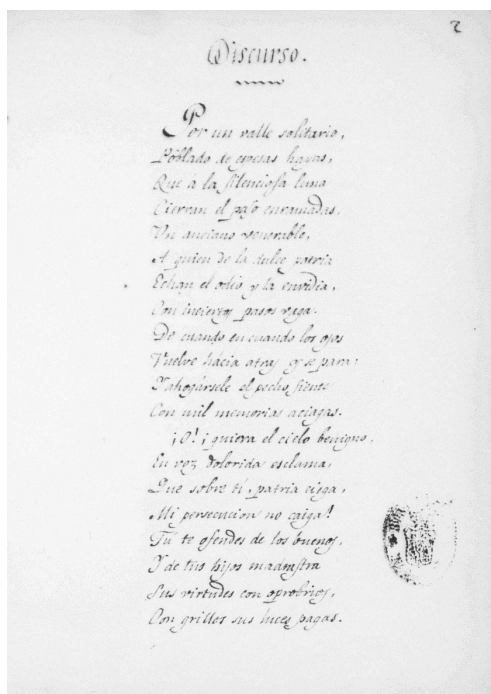 2
Discurso.
Por un valle solitario,
Poblado de espesas hayas,
Que á la silenciosa luna
Cierran el paso enramadas,
Un anciano venerable,
A quien de la dulce patria
Echan el odio y la envidia,
Con inciertos pasos vaga.
De cuando en cuando los ojos
Vuelve hácia atras y se para;
Y ahogársele el pecho siente
Con mil memorias aciagas.
¡O! ¡quiera el cielo benigno,
En voz dolorida esclama,
Que sobre tí, patria ciega,
Mi persecucion no caiga!
Tu te ofendes de los buenos,
Y de tus hijos madrastra
Sus virtudes con oprobrios,
Con grillos sus luces pagas.